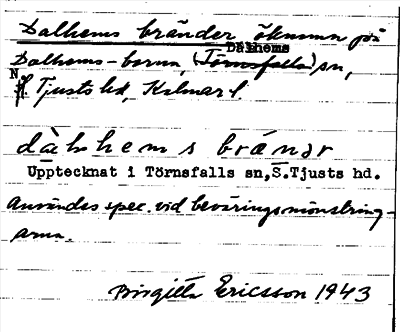 Dalhems bränder öknamn på
Dalhems-borna, (Törnsfalls) sn, Dalhems
N. Tjusts hd, Kalmar l.
dàlhems brænər
Upptecknat i Törnsfalls sn,S.Tjusts hd.
Användes spec. vid beväringsmönstring-
arna.
Birgitta Ericsson 1943